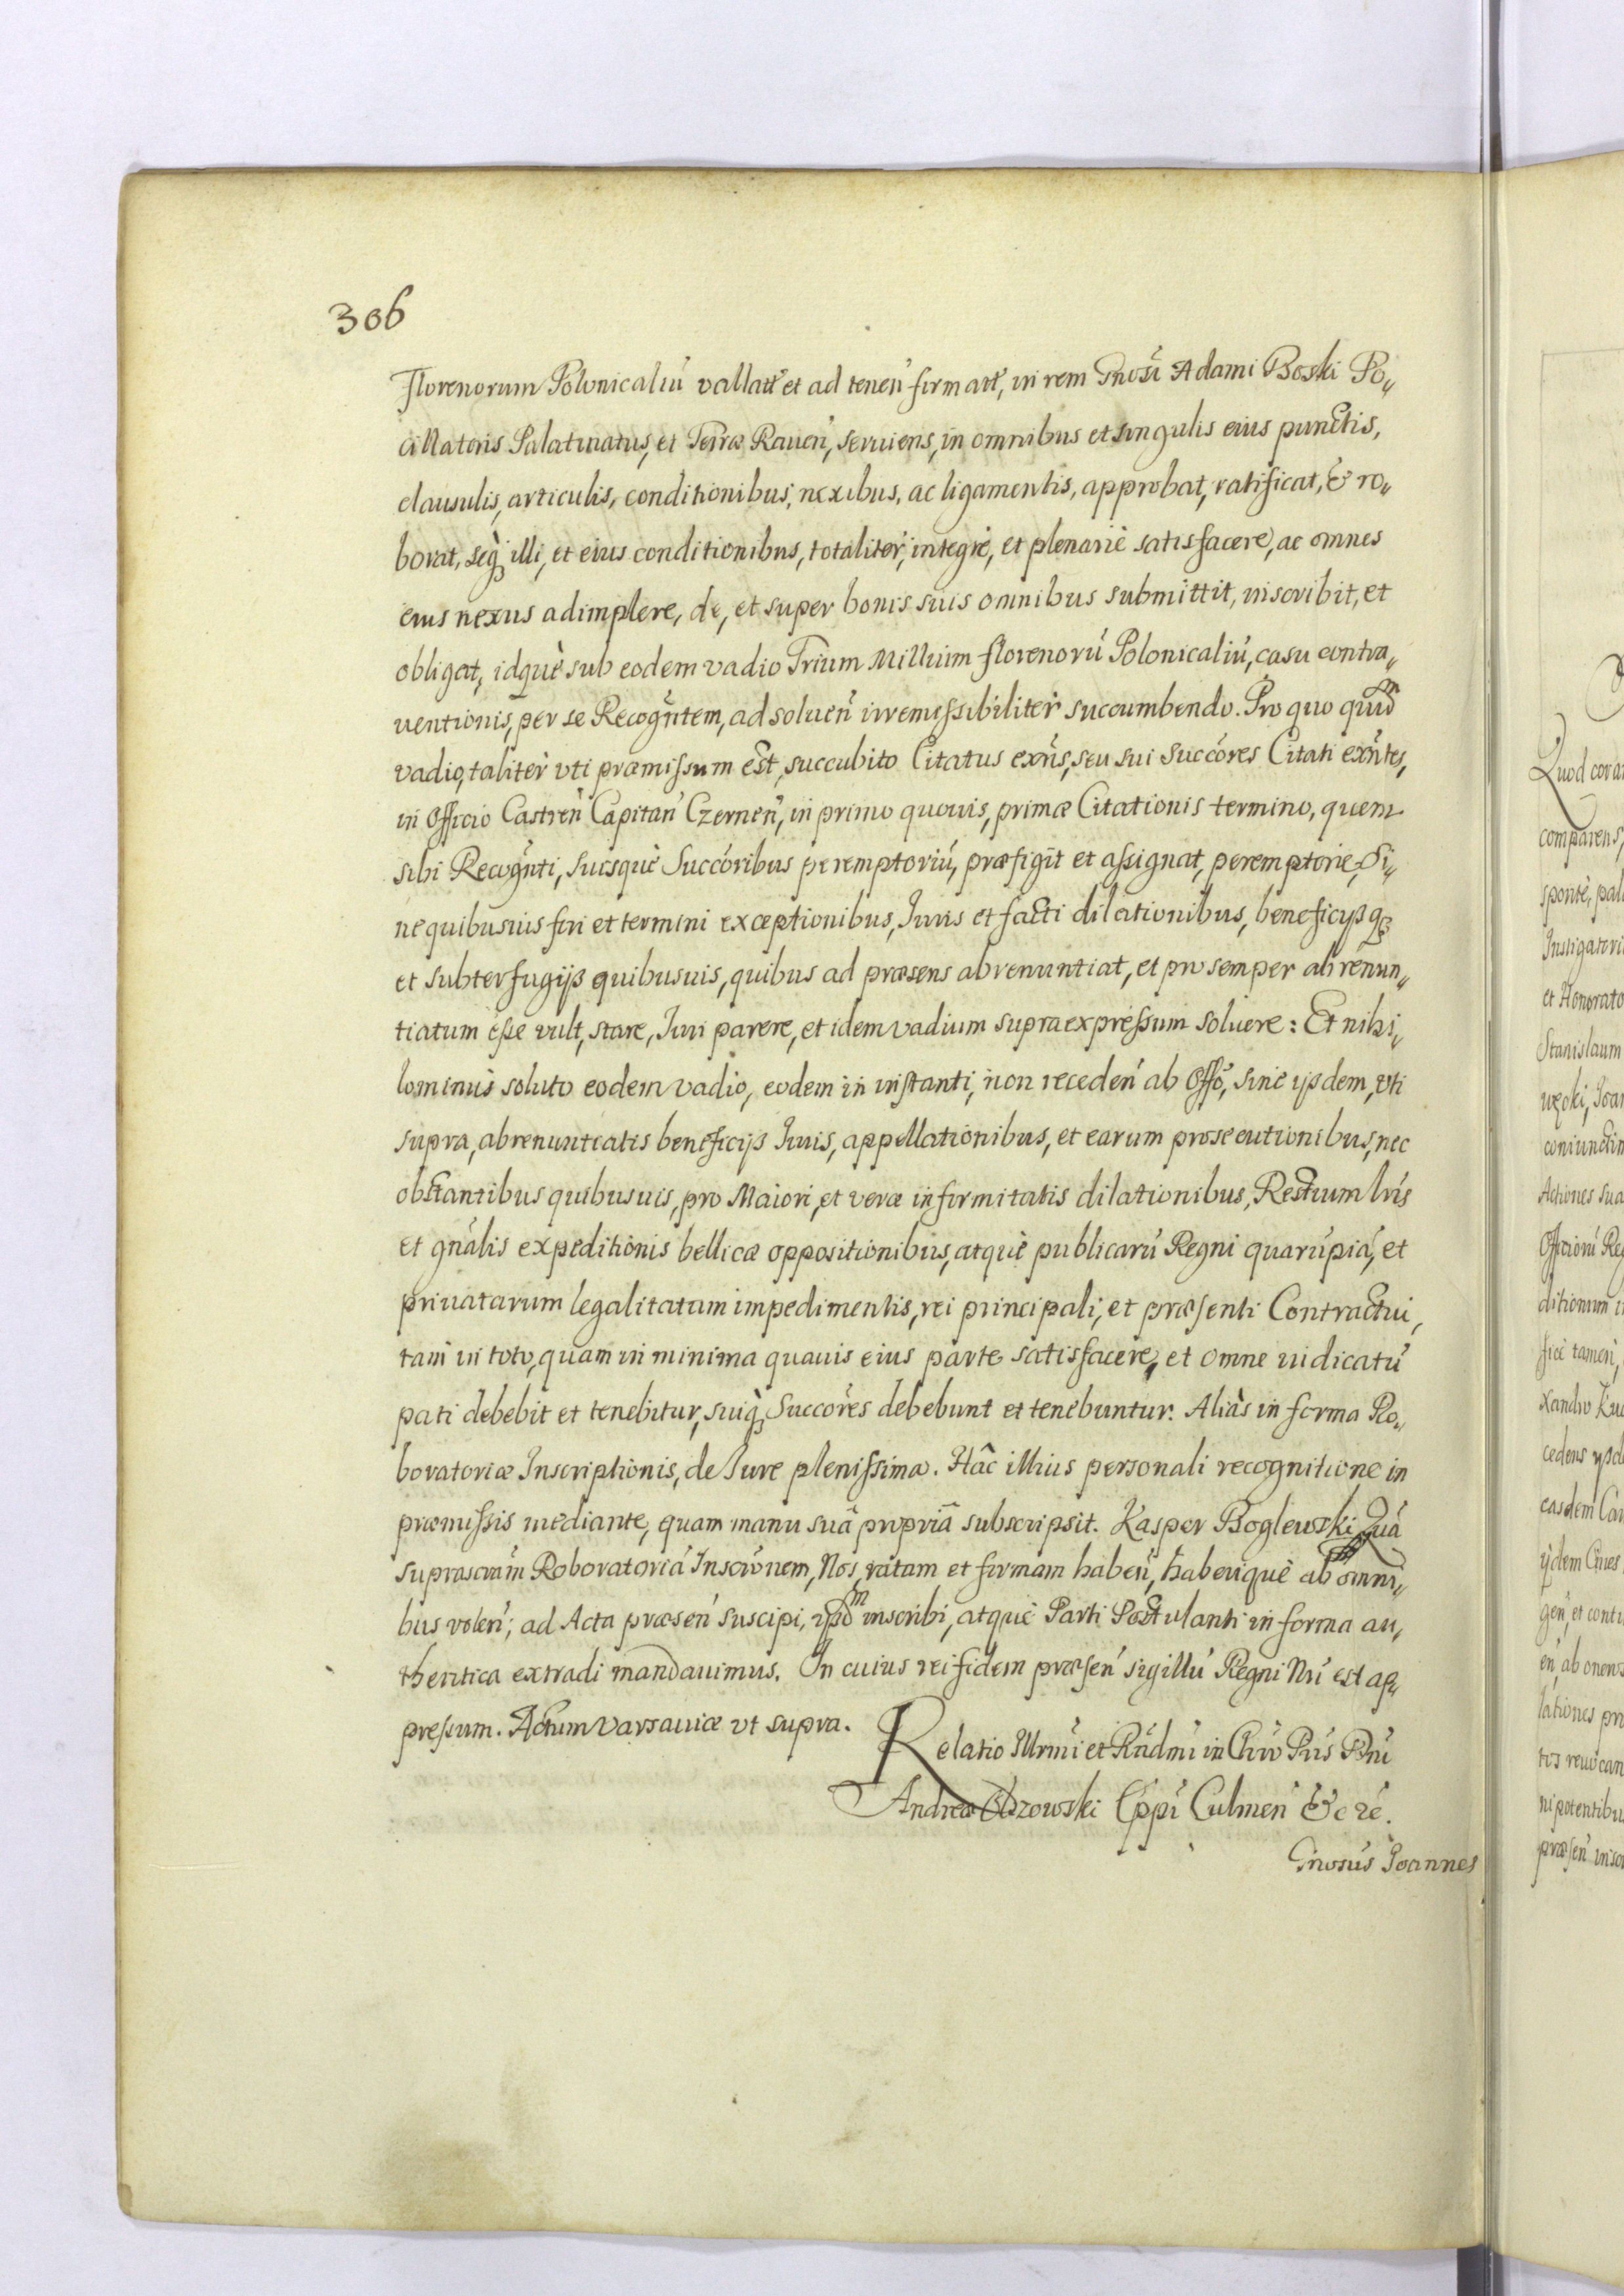 306
Florenorum Polonicaliú vallatt et ad tenen firmatt, in rem Gnosi Adami Boski Po„
cillatoris Palatinatus, et Terræ Rauen, seruiens, in omnibus et singulis eius punctis,
clausulis, articulis, conditionibus, nexibus, ac ligamentis, approbat, ratificat, & ro„
borat, seq illi, et eius conditionibus, totaliter, integrè, et plenariè satisfacere, ac omnes
eius nexus adimplere, de, et super bonis suis omnibus submittit, inscribit, et
obligat, idquè sub eodem vadio Trium Millium florenorú Polonicaliú, casu contra„
uentionis, per se Recogntem, ad soluen irremissibiliter succumbendo. Pro quo quidm
vadio, taliter vti præmissum est, succubito Citatus exns, seu sui Succóres Citati exntes,
in Officio Castren Capitan Czernen, in primo quouis, primæ Citationis termino, quem
sibi Recognti, suisquè Succóribus peremptoriú, præfigit et assignat, peremptorie, Si„
ne quibusuis fori et termini exceptionibus, Iuris et facti dilationibus, beneficijsq
et subterfugijs quibusuis, quibus ad præsens abrenuntiat, et pro semper abrenun„
tiatum esse vult, stare, Iuri parere, et idem vadium supraexpressum soluere: Et nihi„
lominus soluto eodem vadio, eodem in instanti, non receden ab Offo, sine ijsdem, vti
supra, abrenuntiatis beneficijs Iuris, appellationibus, et earum prosecutionibus, nec
obstantibus quibusuis, pro Maiori, et veræ infirmitatis dilationibus, Restium lris
et gnalis expeditionis bellicæ oppositionibus, atquè publicarú Regni quarúpiá, et
priuatarum legalitatum impedimentis, rei principali, et præsenti Contractui,
tam in toto, quam in minima quauis eius parte satisfacere, et omne iudicatú
pati debebit et tenebitur, suiq Succóres debebunt et tenebuntur. Aliàs in forma Ro„
boratoriæ Inscriptionis, de Iure plenissima. Hâc illius personali recognitione in
præmissis mediante, quam manu suâ propriâ subscripsit. Kasper Boglewski Quá
suprascram Roboratoriá Inscrónem, Nos, ratam et firmam haben, haberiquè ab omni„
bus volen; ad Acta præsen suscipi, ipsdm inscribi, atquè Parti Postulanti in forma au„
thentica extradi mandauimus. In cuius rei fidem præsen sigillú Regni Nri est ap„
pressum. Actum Varsauiæ vt supra.
Relatio Illrmi et Rndmi in Chro Pris Dni
Andreæ Olszowski Eppi Culmen & c re.
Gnosus Ioannes